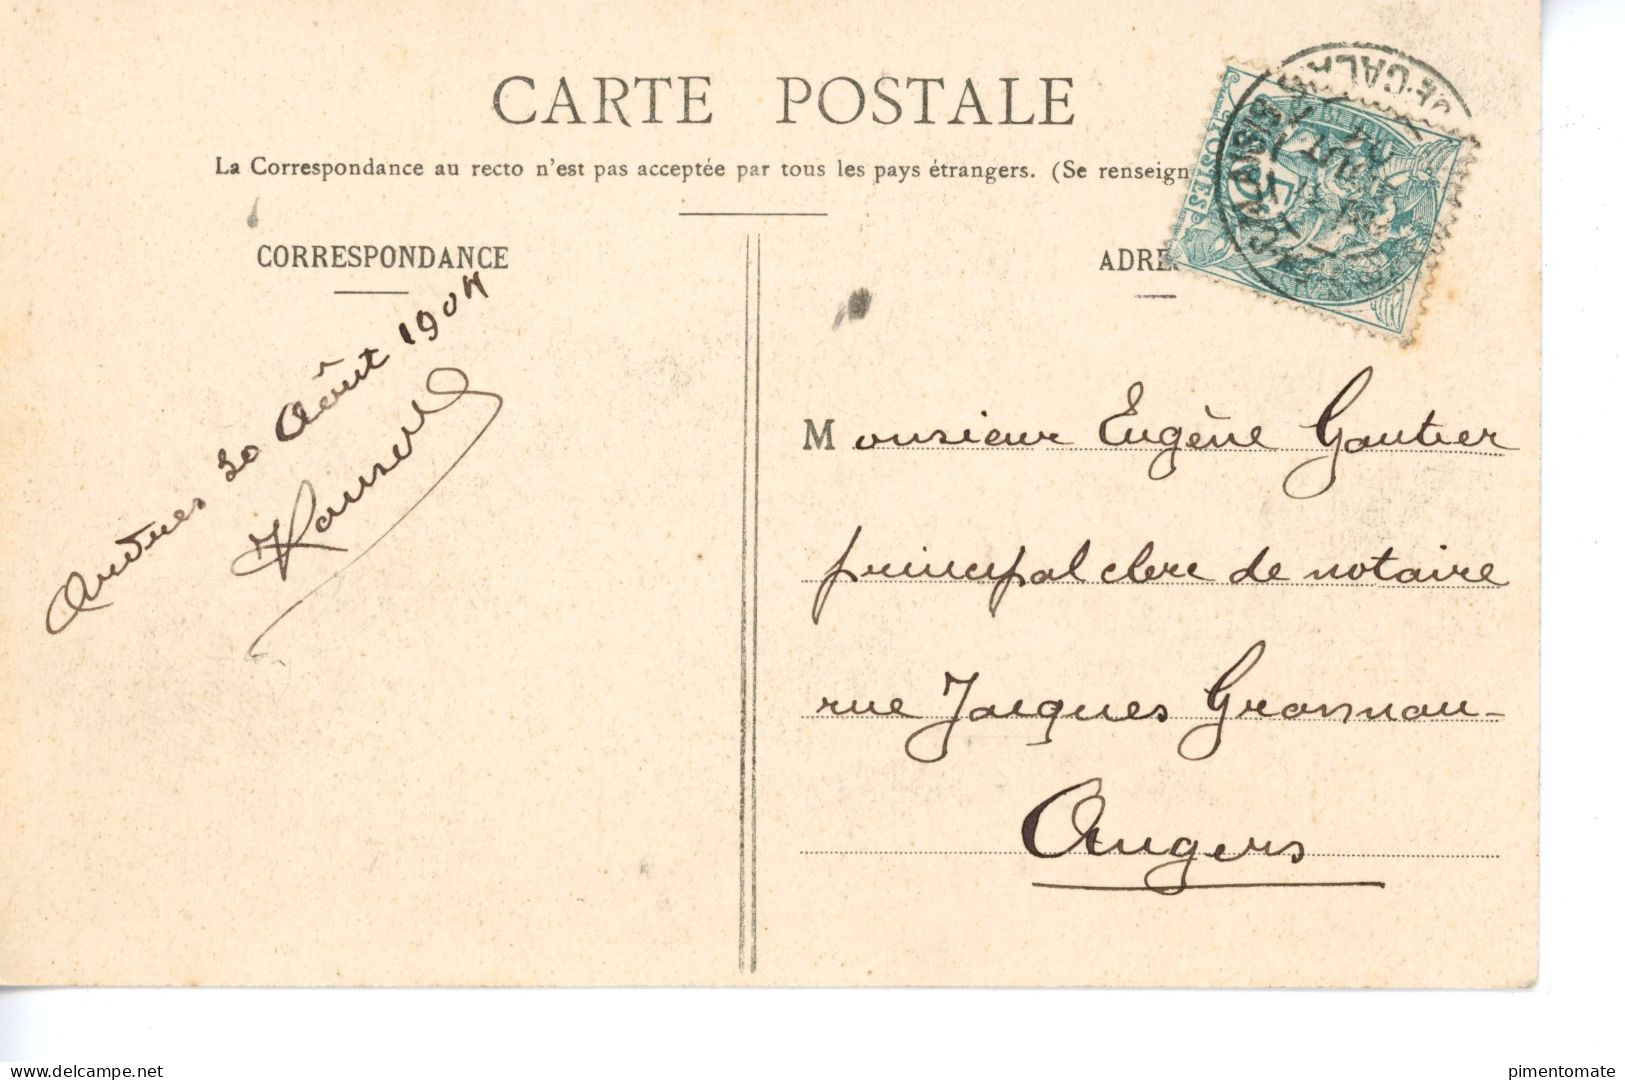 CARTE POSTALE
La Correspondance au recto n'est pas acceptée par tous les pays étrangers. (Se renseign
CORRESPONDANCE
ADRE
POSTES
5
Août 1904
Monsieur Eugène Gautier
principal clerc de notaire
rue Jacques Granneau-
Angers
www.delcampe.net
pimentomate